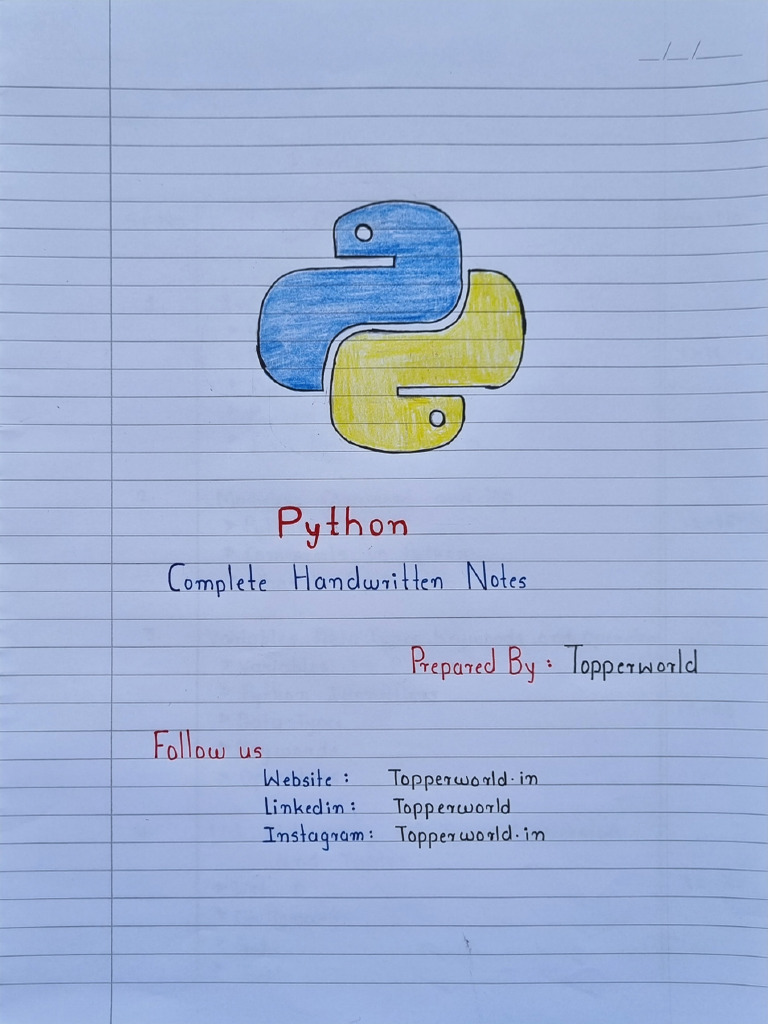 __/__/____
Python
Complete Handwritten Notes
Prepared By : Topperworld
Follow us
Website : Topperworld.in
Linkedin : Topperworld
Instagram : Topperworld.in